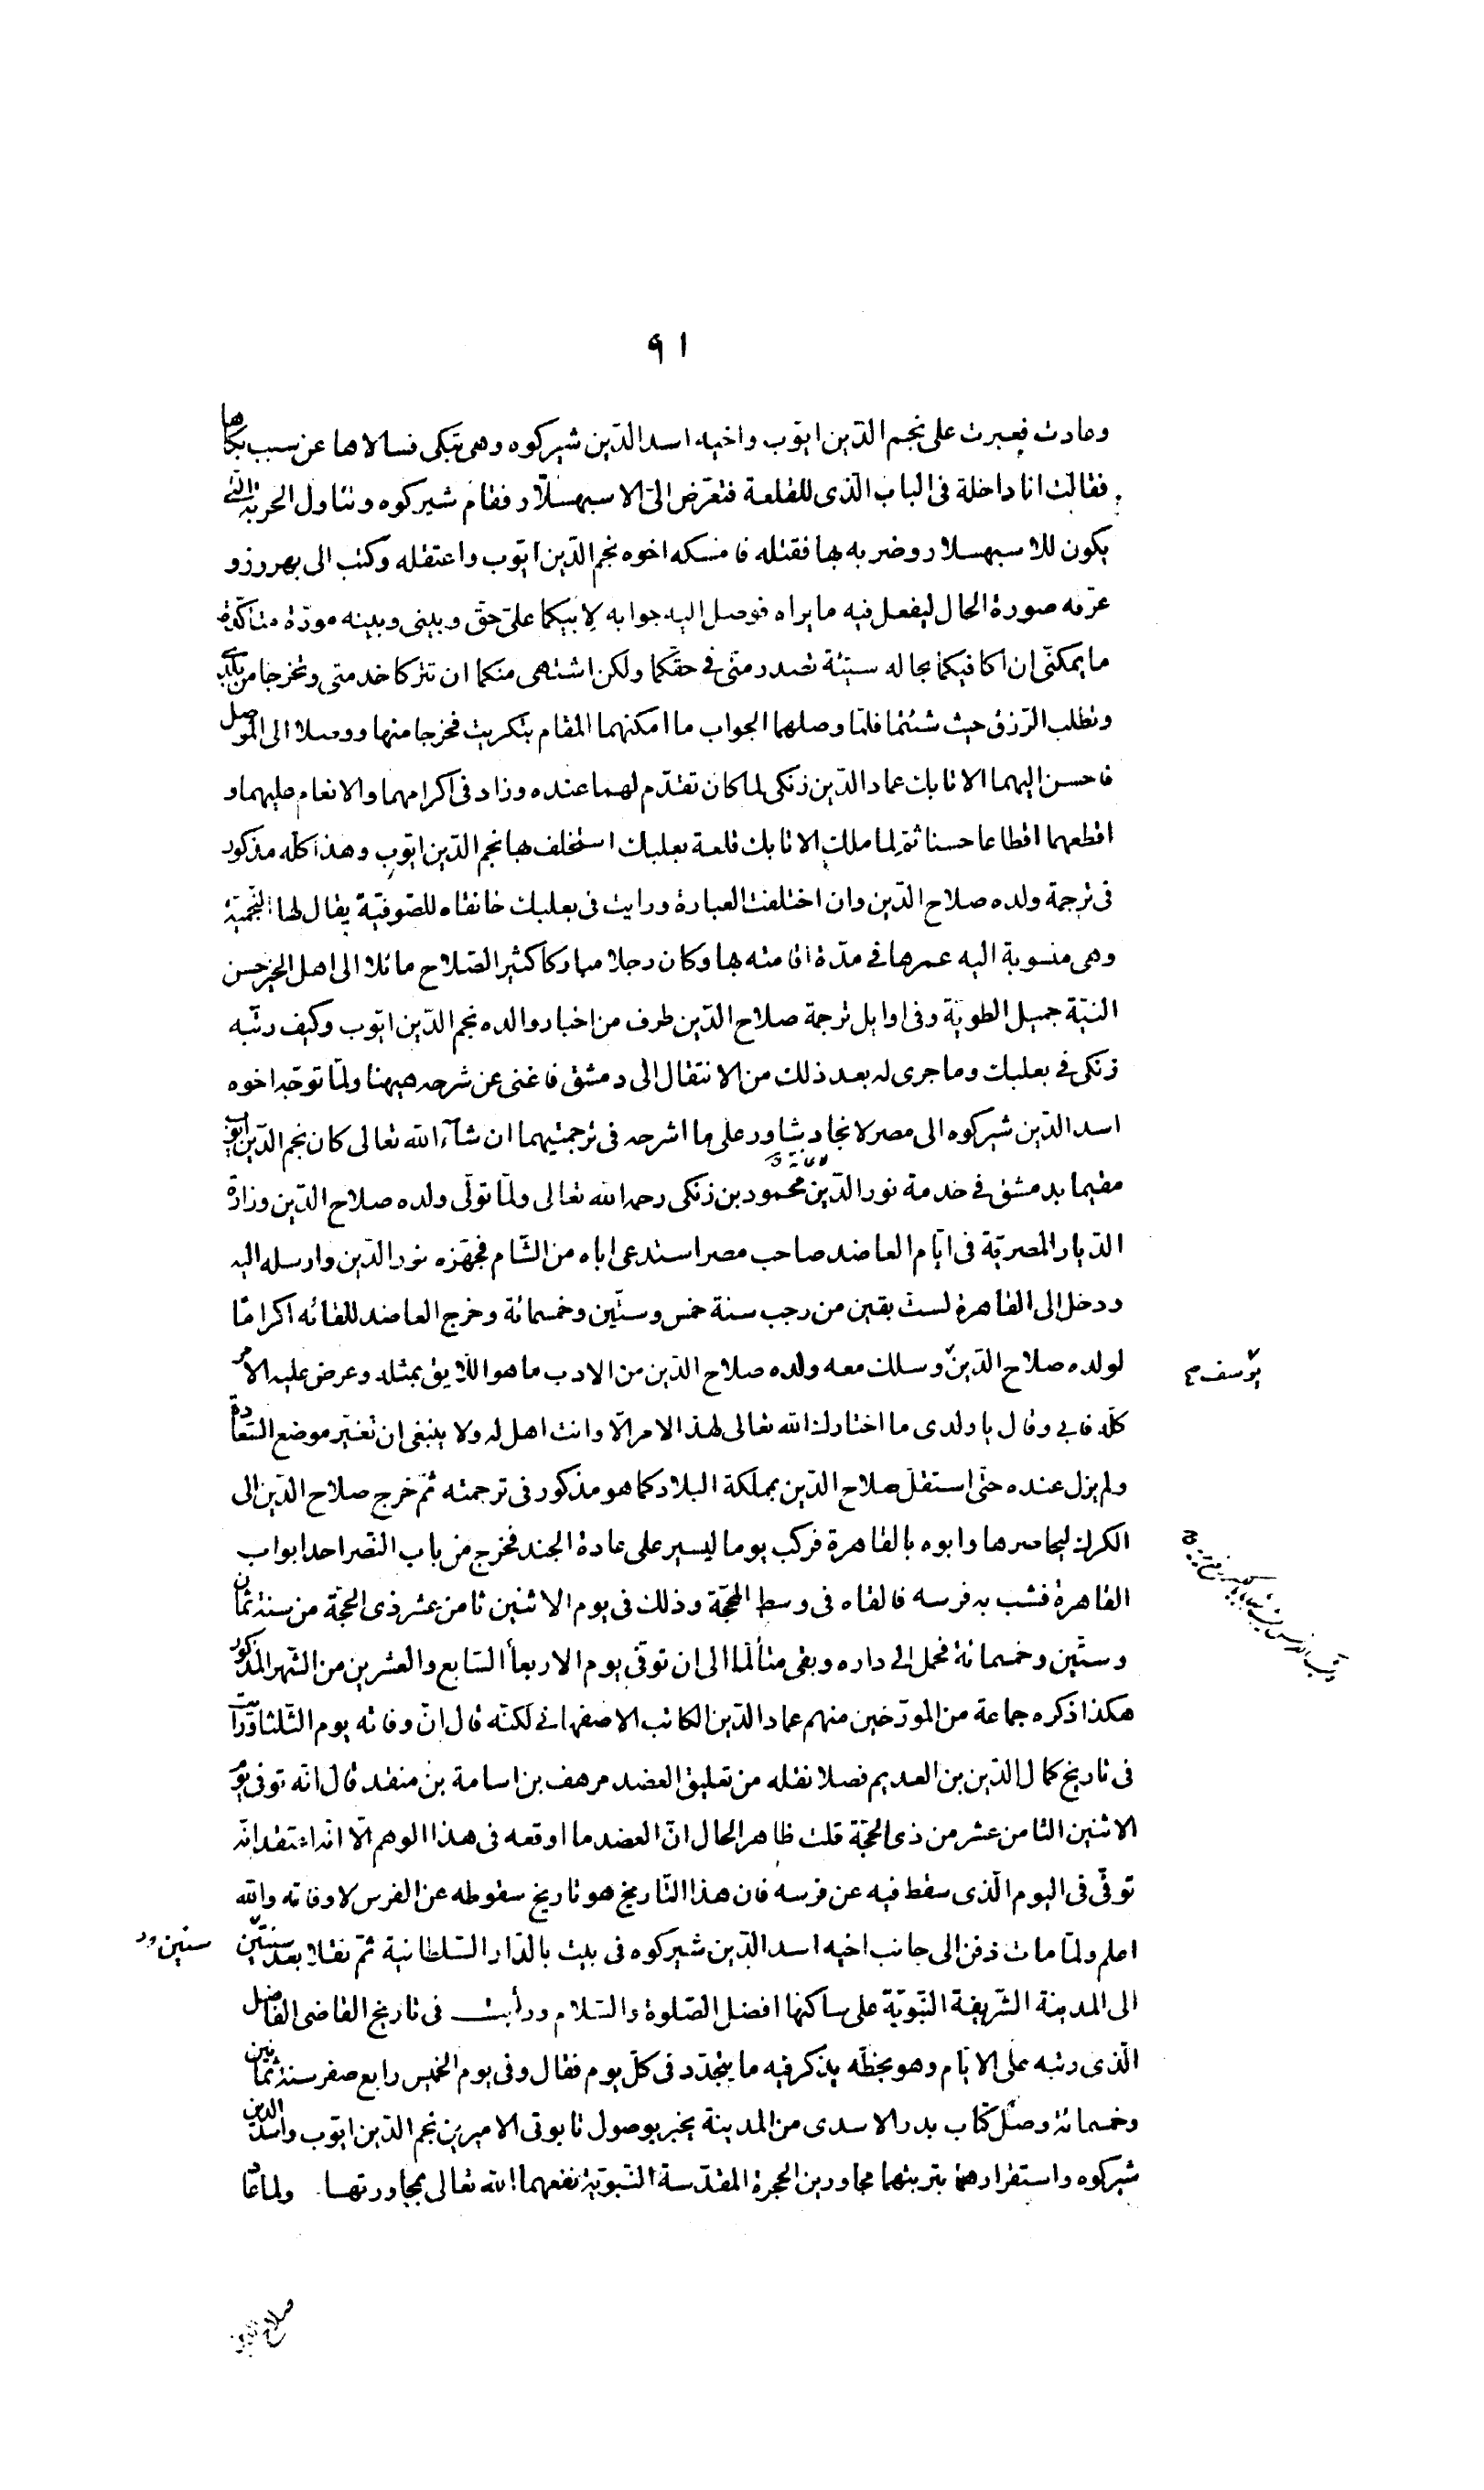 ٩١
وعادت فعبرت على نجم الدّين ايّوب واخيه اسد الدّين شيركوه وهى تبكى فسالاها عن سبب بكاها
فقالت انا داخلة فى الباب الّذى للقلعة فتعرّض الىّ الاسبهسلّار فقام شيركوه وتناول الحربة الّتى
يكون للاسبهسلار وضربه بها فقتله فامسكه اخوه نجم الدّين ايّوب واعتقله وكتب الى بهروز و
عرّفه صورة الحال ليفعل فيه ما يراه فوصل اليه جوابه لابيكما علىّ حقّ وبينى وبينه مودّة متأكّدة
ما يمكنّى ان اكافيكما بحاله سيّئة تصدر منّى فى حقّكما ولكن اشتهى منكما ان تتركا خدمتى وتخرجا من بلدى
وتطلب الرّزق حيث شئتما فلمّا وصلهما الجواب ما امكنهما المقام بتكريت فخرجا منها ووصلا الى الموصل
فاحسن اليهما الاتابك عماد الدّين زنكى لما كان تقدّم لهما عنده وزاد فى اكرامهما والانعام عليهما و
اقطعهما اقطاعا حسنا ثمّ لما ملك الاتابك قلعة بعلبك استخلف بها نجم الدّين ايّوب وهذا كلّه مذكور
فى ترجمة ولده صلاح الدّين وان اختلفت العبارة ورايت فى بعلبك خانقاه للصّوفيّة يقال لها النّجميّة
وهى منسوبة اليه عمرها فى مدّة اقامته بها وكان رجلا مباركا كثير الصّلاح مائلا الى اهل الخير حسن
النيّة جميل الطويّة وفى اوايل ترجمة صلاح الدّين طرف من اخبار والده نجم الدّين ايّوب وكيف رتّبه
زنكى فى بعلبك وما جرى له بعد ذلك من الانتقال الى دمشق فاغنى عن شرحه هيهنا ولمّا توجّه اخوه
اسد الدّين شيركوه الى مصر لانجاد شاور على ما اشرحه فى ترجمتيهما ان شآء الله تعالى كان نجم الدّين ايّوب
مقيما بدمشق فى خدمة نور الدّين محمود بن زنكى رحمه الله تعالى ولمّا تولّى ولده صلاح الدّين وزارة
الدّيار المصريّة فى ايّام العاضد صاحب مصر استدعى اباه من الشّام فجهّزه نور الدّين وارسله اليه
ودخل الى القاهرة لستّ بقين من رجب سنة خمس وستّين وخمسمائة وخرج العاضد للقائه اكرامًا
لولده صلاح الدّين وسلك معه ولده صلاح الدّين من الادب ما هو اللّايق بمثله وعرض عليه الامر
يوسف صح
كلّه فابى وقال يا ولدى ما اختارك الله تعالى لهذ الامر الّا وانت اهل له ولا ينبغى ان تغيّر موضع السّعادة
ولم يزل عنده حتّى استقلّ صلاح الدّين بمملكة البلاد كما هو مذكور فى ترجمته ثمّ خرج صلاح الدّين الى
الكرك ليحاصرها وابوه بالقاهرة فركب يوما ليسير على عادة الجند فخرج من باب النّصر احد ابواب
القاهرة فشبّ به فرسه فالقاه فى وسط المحجّة وذلك فى يوم الاثنين ثامن عشر ذى الحجّة من سنة ثمان
وستّين وخمسمائة فحمل الى داره وبقى متألّما الى ان توفّى يوم الاربعا السّابع والعشرين من الشّهر المذكور
هكذا ذكره جماعة من المورّخين منهم عماد الدّين الكاتب الاصفهانى لكنّه قال انّ وفاته يوم الثّلثا ورأيت
فى تاريخ كمال الدّين بن العديم فصلا نقله من تعليق العضد مرهف بن اسامة بن منقذ قال انّه توفى يوم
الاثنين الثامن عشر من ذى الحجّة قلت ظاهر الحال انّ العضد ما اوقعه فى هذا الوهم الّا انّه اعتقد انّه
توفّى فى اليوم الّذى سقط فيه عن فرسه فان هذا التّاريخ هو تاريخ سقوطه عن الفرس لا وفاته والله
اعلم ولمّا مات دفن الى جانب اخيه اسد الدّين شيركوه فى بيت بالدّار السّلطانية ثمّ نقلا بعد سنتين
سنين
الى المدينة الشّريفة النّبويّة على ساكنها افضل الصّلوة والسّلام ورأيت فى تاريخ القاضى الفاضل
الّذى رتبه على الايّام وهو بخطّه يذكر فيه ما يتجدّد فى كلّ يوم فقال وفى يوم الخميس رابع صفر سنة ثمانين
وخمسمائة وصل كتاب بدر الاسدى من المدينة يخبر بوصول تابوتى الاميرين نجم الدّين ايّوب واسد الدين
شيركوه واستقرارهما بتربتهما مجاورين الحجرة المقدّسة النّبويّة نفعهما الله تعالى بمجاورتها ولما عاد
صلاح الدين